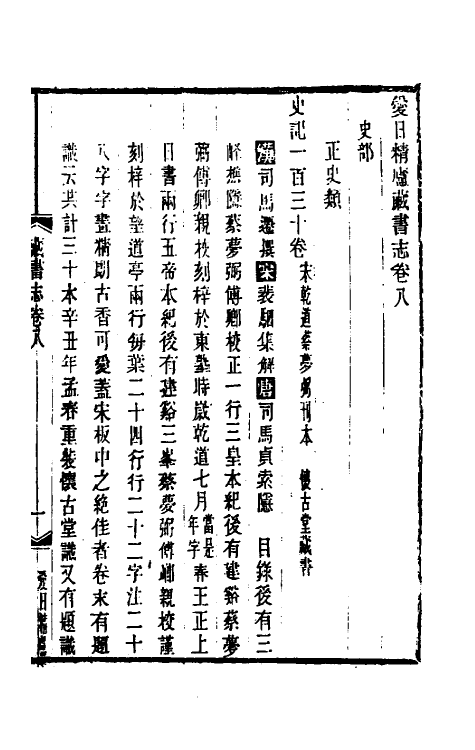 愛日精廬藏書志卷八
史部
正史類
史記一百三十卷 宋乾道蔡夢弼刊本 懷古堂藏書
漢司馬遷撰宋裴駰集解唐司馬貞索隱 目錄後有三
峰樵隱蔡夢弼傅卿校正一行三皇本紀後有建谿蔡夢
弼傅卿親校刻梓於東塾時歲乾道七月當是年字春王正上
日書兩行五帝本紀後有建谿三峯蔡夢弼傅卿親校謹
刻梓於望道亭兩行每葉二十四行行二十二字注二十
八字字畫精朗古香可愛蓋宋板中之絶佳者卷末有題
識云共計三十本辛丑年孟春重裝懷古堂識又有題識
藏書志卷八
一
愛日精廬